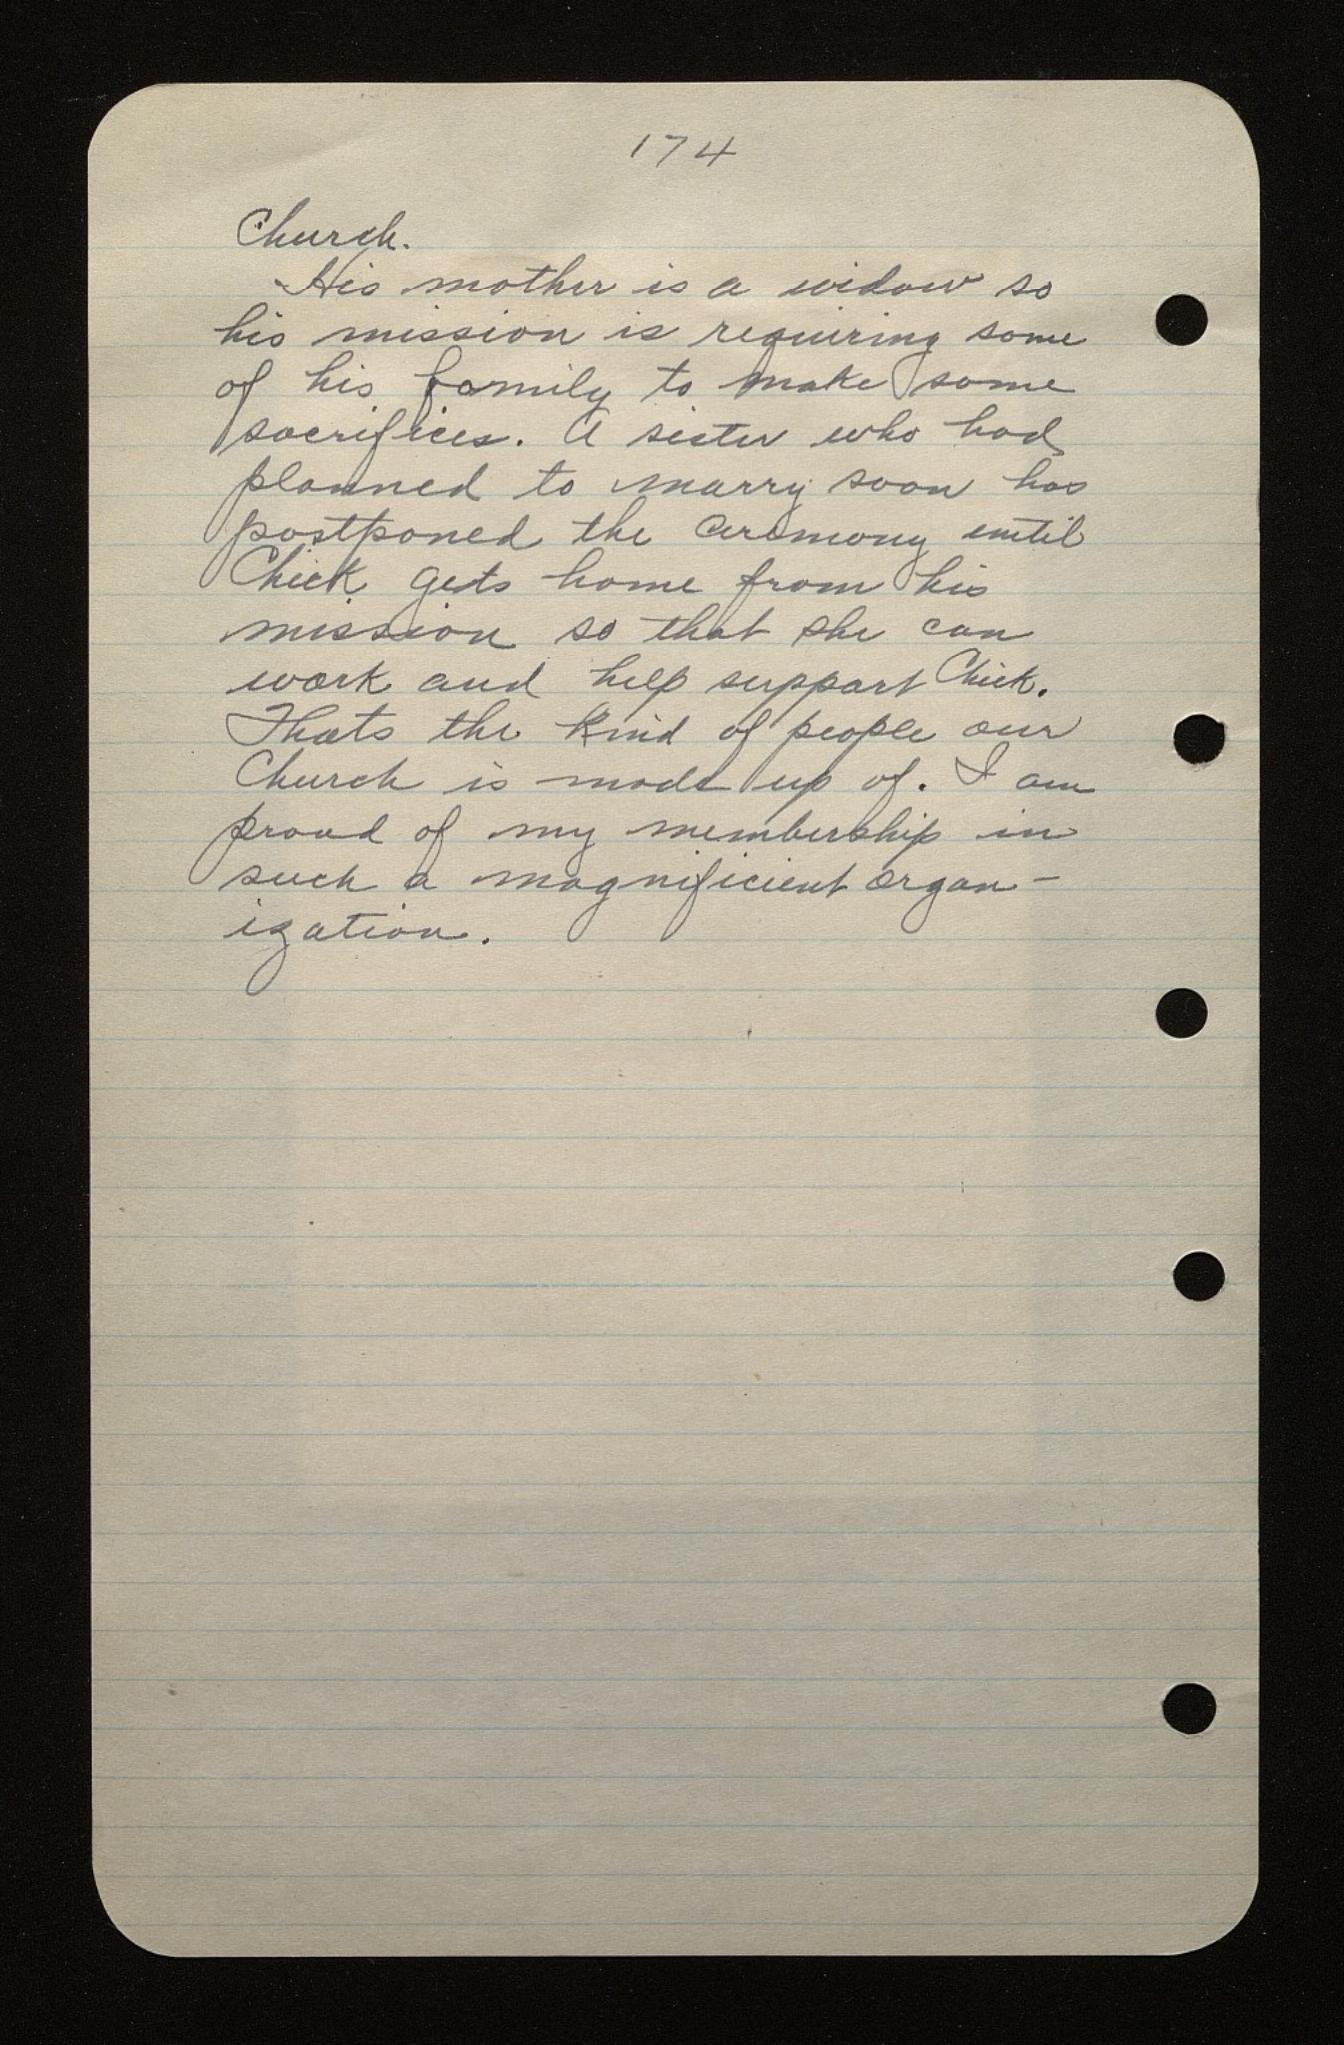 174
Church.
His mother is a widow so
his mission is requiring some
of his family to make some
sacrifices. A sister who had
planned to marry soon has
postponed the ceremony until
Chick gets home from his
mission so that she can
work and help support Chick.
Thats the kind of people our
Church is made up of. I am
proud of my membership in
such a magnificient organ-
ization.